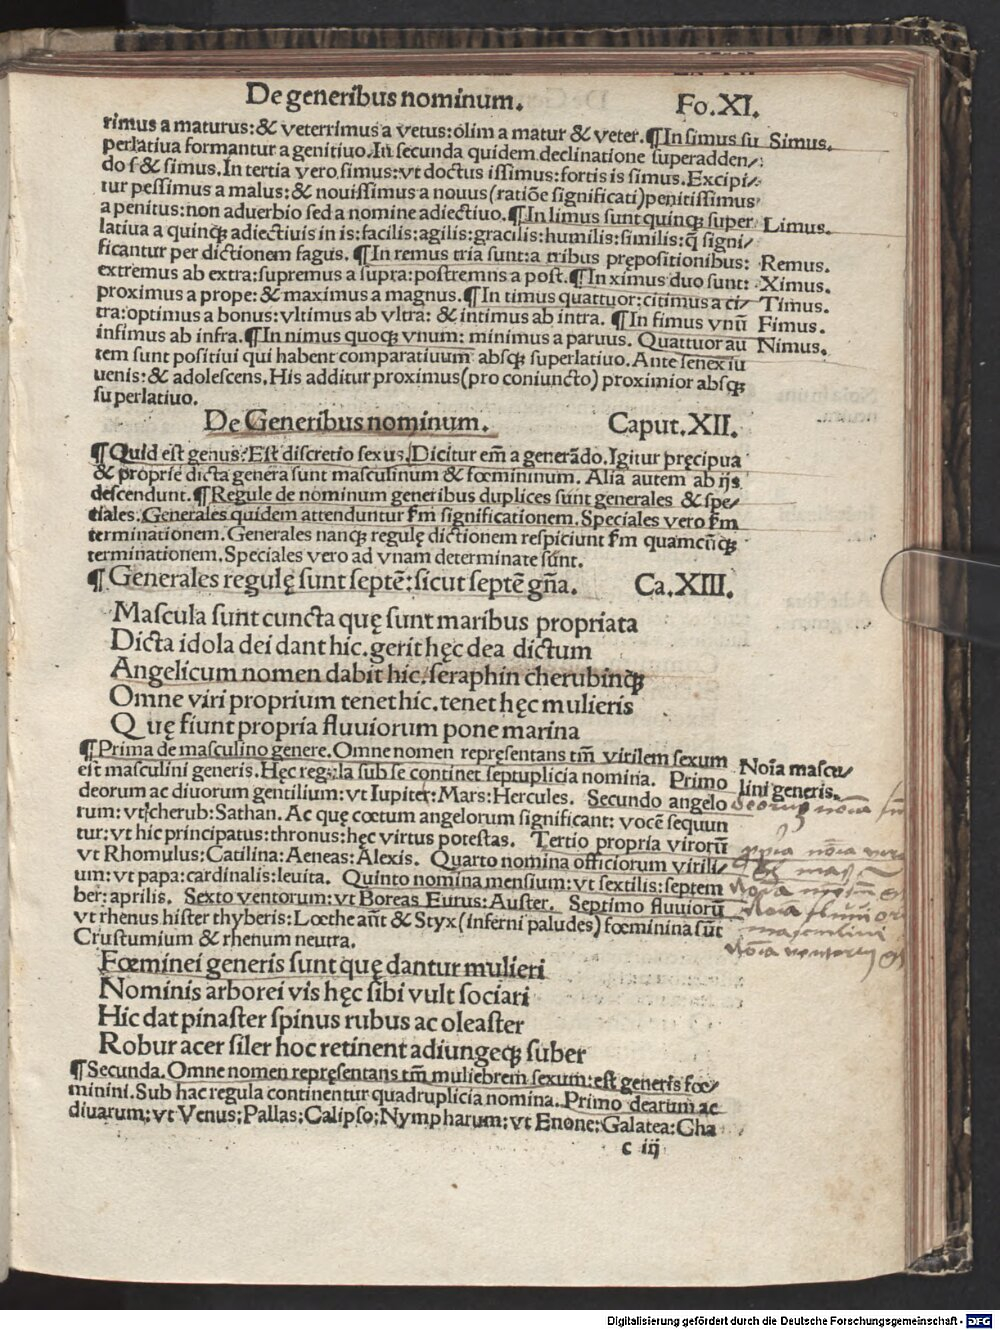 De generibus nominum. Fo.XI.
rimus a maturus:& veterrimus a vetus:olim a matur & veter.¶In simus su Simus.
perlatiua formantur a genitiuo.In secunda quidem declinatione superadden/
do s & simus.In tertia vero simus:vt doctus issimus:fortis is simus.Excipi/
tur pessimus a malus:& nouissimus a nouus(ratiõe significati)penitissimus
a penitus:non aduerbio sed a nomine adiectiuo.¶In limus sunt quinqꝫ super Limus.
latiua a quinqꝫ adiectiuis in is:facilis:agilis:gracilis:humilis:similis:q̃ signi/
ficantur per dictionem fagus.¶In remus tria sunt:a tribus prępositionibus: Remus.
extremus ab extra:supremus a supra:postremns a post.¶In ximus duo sunt: Ximus.
proximus a prope:& maximus a magnus.¶In timus quattuor:citimus a ci/ Timus.
tra:optimus a bonus:vltimus ab vltra: & intimus ab intra. ¶In fimus vnũ Fimus.
infimus ab infra.¶In nimus quoqꝫ vnum: minimus a paruus. Quattuor au Nimus.
tem sunt positiui qui habent comparatiuum absqꝫ superlatiuo. Ante senex iu
uenis:& adolescens.His additur proximus(pro coniuncto)proximior absqꝫ
superlatiuo.
De Generibus nominum. Caput.XII.
¶Quid est genus?Est discretio sexus.Dicitur em̃ a generãdo.Igitur pręcipua
& proprie dicta genera sunt masculinum & fœmininum. Alia autem ab ijs
descendunt.¶Regule de nominum generibus duplices sunt generales & spe/
ciales.Generales quidem attenduntur f̃m significationem.Speciales vero f̃m
terminationem.Generales nanqꝫ regulę dictionem respiciunt f̃m quamcũqꝫ
terminationem.Speciales vero ad vnam determinate sũnt.
¶Generales regulę sunt septẽ:sicut septẽ gña. Ca.XIII.
Mascula sunt cuncta quę sunt maribus propriata
Dicta idola dei dant hic.gerit hęc dea dictum
Angelicum nomen dabit hic.seraphin cherubinqꝫ
Omne viri proprium tenet hic.tenet hęc mulieris
Quę fiunt propria fluuiorum pone marina
¶Prima de masculino genere.Omne nomen repręsentans tm̃ virilem sexum
est masculini generis.Hęc regula sub se continet septuplicia nomina. Primo Noĩa mascu/
deorum ac diuorum gentilium:vt Iupiter:Mars:Hercules. Secundo angelo lini generis.
rum:vt cherub:Sathan.Ac quę cœtum angelorum significant: vocẽ sequun
tur:vt hic principatus:thronus:hęc virtus potestas. Tertio propria virorũ
vt Rhomulus:Catilina:Aeneas:Alexis. Quarto nomina officiorum virili/
um:vt papa:cardinalis:leuita. Quinto nomina mensium:vt sextilis:septem
ber:aprilis. Sexto ventorum:vt Boreas Eurus:Auster. Septimo fluuiorũ
vt rhenus hister thyberis:Lœthe aũt & Styx(inferni paludes)fœminina sũt
Crustumium & rhenum neutra.
Fœminei generis sunt quę dantur mulieri
Nominis arborei vis hęc sibi vult sociari
Hic dat pinaster spinus rubus ac oleaster
Robur acer siler hoc retinent adiungeqꝫ suber
¶Secunda.Omne nomen repręsentans tm̃ muliebrem sexum:est generis fœ/
minini.Sub hac regula continentur quadruplicia nomina.Primo dearum ac
diuarum:vt Venus;Pallas;Calipso;Nympharum:vt Enone:Galatea:Cha
c iij
Digitalisierung gefördert durch die Deutsche Forschungsgemeinschaft - DFG